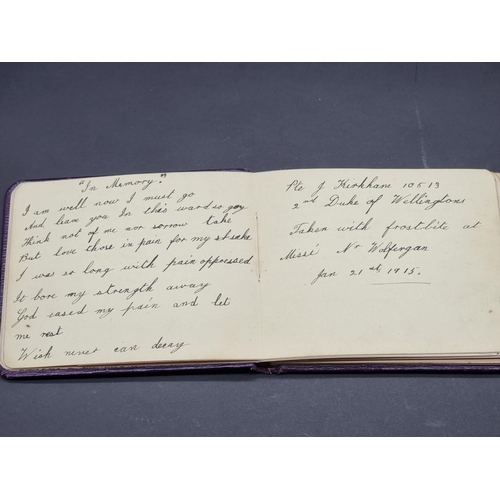 "In Memory."
I am well now I must go
And leave you In this ward so gay
Think not of me nor sorrow take
But love those in pain for my st sake
I was so long with pain oppressed
It bore my strength away
God eased my pain and let
me rest
Wich never can decay
Pte J Kirkham 10513
2nd Duke of Wellingtons
Taken with frostbite at
Missi Nr Wolfergan
Jan 21st 1915.